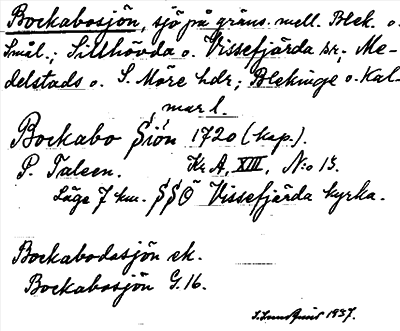 Bockabosjön, sjö på gräns mell. Blek. o.
Smål.; Sillhövda o. Vissefjärda snr; Me-
delstads o. S. Möre hdr; Blekinge o. Kal-
mar l.
Bockabo Siön 1720 (kop.).
P. Taleen. Kr A, XIII, N:o 15.
Läge 7 km. SSO Vissefjärda kyrka.
Bockabodasjön ek.
Bockabosjön G. 16.
1937.